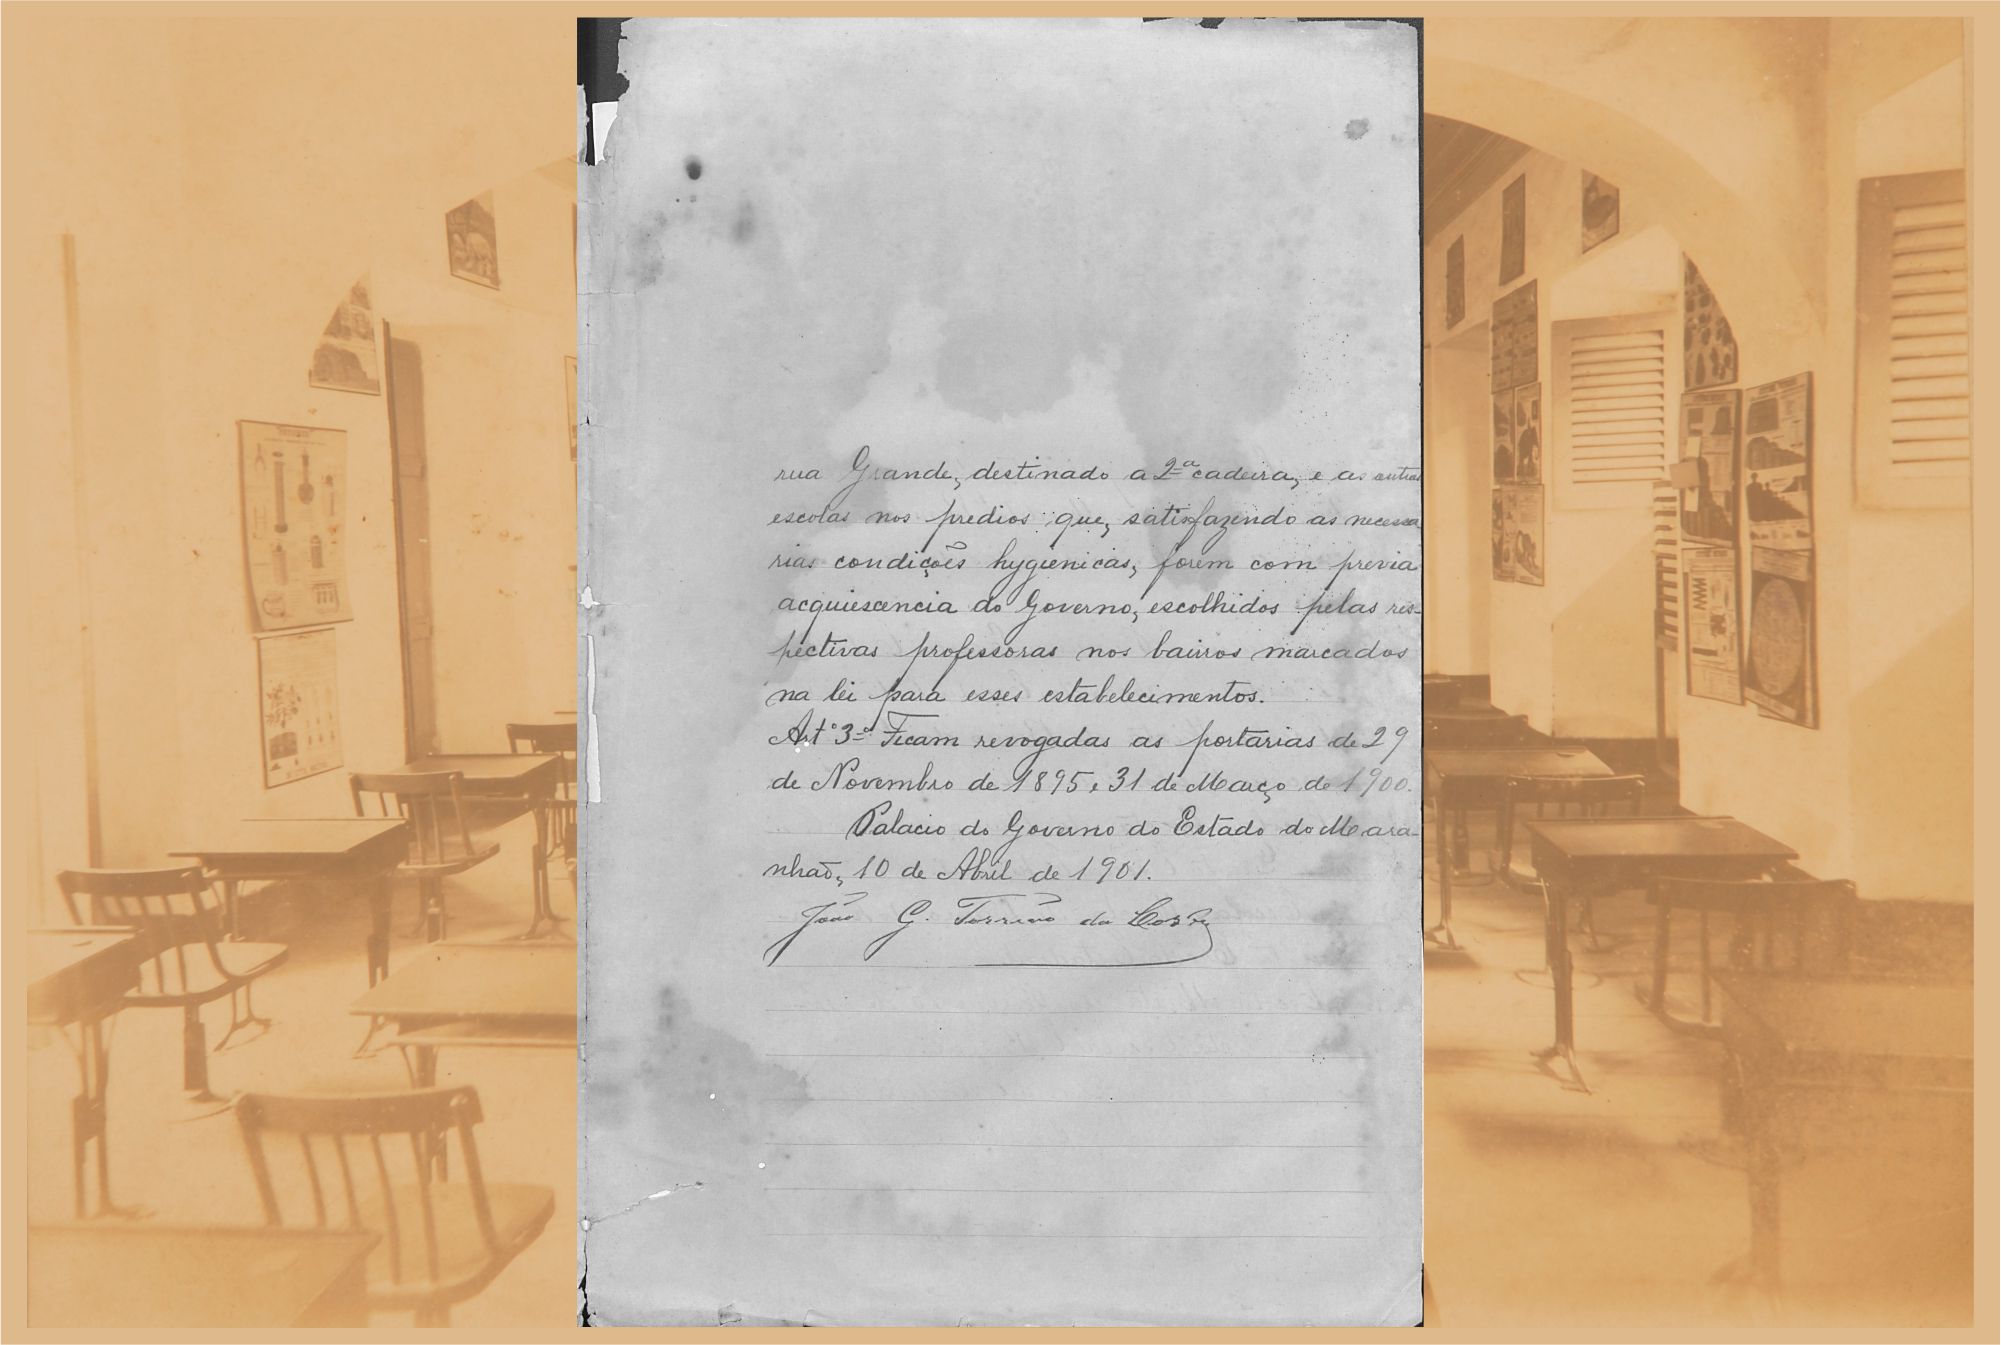 rua Grande, destinado a 2ª cadeira, e as outras
escolas nos predios que, satisfazendo as necessa
rias condições hygienicas, forem com previa
acquiescencia do Governo, escolhidos pelas res-
pectivas professoras nos bairros marcados
na lei para esses estabelecimentos.
Art° 3º Ficam revogadas as portarias de 29
de Novembro de 1895 e 31 de Março de 1900.
Palacio do Governo do Estado do Mara-
nhão, 10 de Abril de 1901.
João G. Torreão da Costa